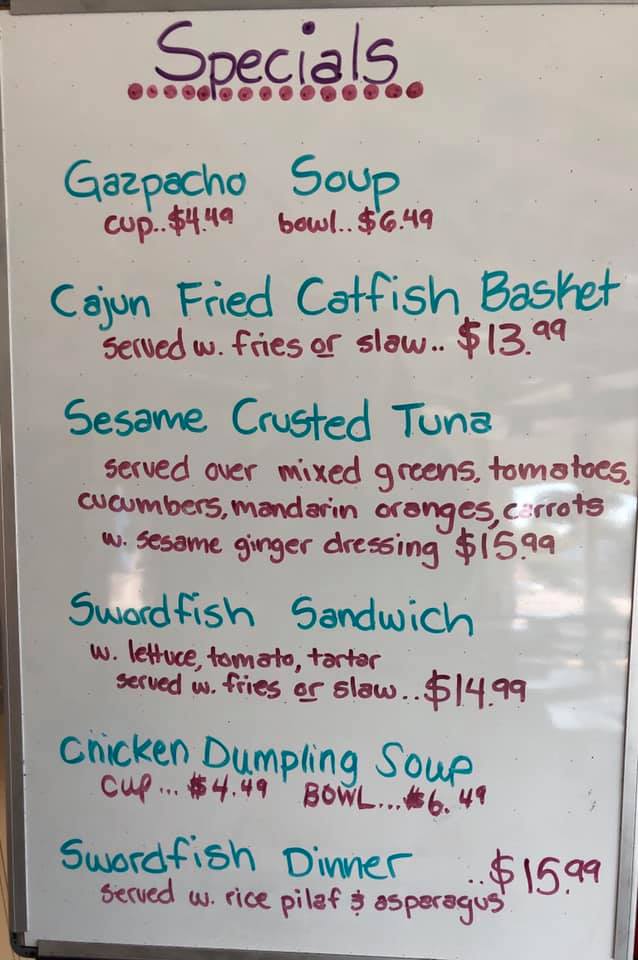 Specials
Gazpacho Soup
cup..$4.49 bowl..$6.49
Cajun Fried Catfish Basket
served w. fries or slaw.. $13.99
Sesame Crusted Tuna
served over mixed greens, tomatoes,
cucumbers, mandarin oranges, carrots
w. sesame ginger dressing $15.99
Swordfish Sandwich
w. lettuce, tomato, tartar
served w. fries or slaw..$14.99
Chicken Dumpling Soup
cup... $4.49 BOWL...$6.49
Swordfish Dinner ..$15.99
served w. rice pilaf & asparagus